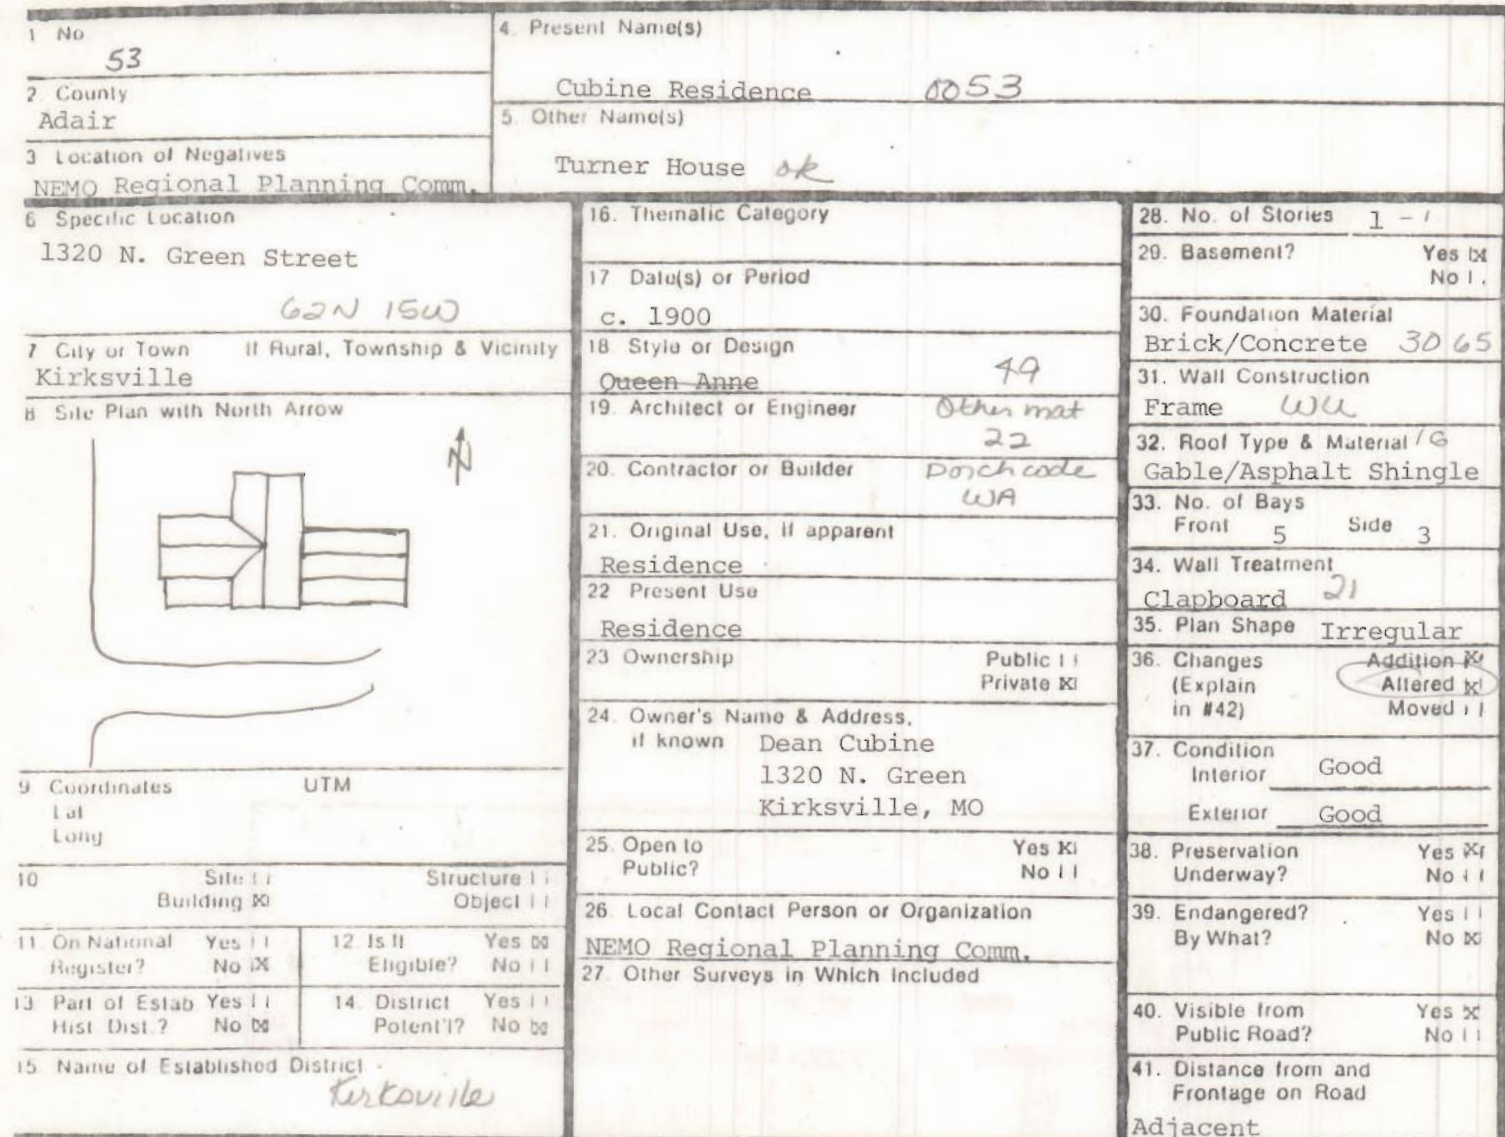 1 No
53
2. County
Adair
3 Location of Negatives
NEMO Regional Planning Comm.
4. Present Name(s)
Cubine Residence 0053
5. Other Name(s)
Turner House ok
6 Specific Location
1320 N. Green Street
62N 15W
7 City or Town If Rural, Township & Vicinity
Kirksville
8 Site Plan with North Arrow
N
9 Coordinates UTM
Lat
Long
10 Site Structure
Building X Object
11. On National Register? Yes No X
12. Is It Eligible? Yes X No
13. Part of Estab. Hist. Dist.? Yes No X
14. District Potent'l? Yes No X
15. Name of Established District
Kirksville
16. Thematic Category
17 Date(s) or Period
c. 1900
18 Style or Design
Queen Anne 49
19. Architect or Engineer Other mat
22
20. Contractor or Builder Porch code
WA
21. Original Use, If apparent
Residence
22 Present Use
Residence
23 Ownership Public
Private X
24. Owner's Name & Address,
if known Dean Cubine
1320 N. Green
Kirksville, MO
25. Open to Yes X
Public? No
26. Local Contact Person or Organization
NEMO Regional Planning Comm.
27. Other Surveys in Which Included
28. No. of Stories 1 - 1
29. Basement? Yes X
No
30. Foundation Material
Brick/Concrete 30 65
31. Wall Construction
Frame WU
32. Roof Type & Material 1G
Gable/Asphalt Shingle
33. No. of Bays
Front 5 Side 3
34. Wall Treatment
Clapboard 21
35. Plan Shape Irregular
36. Changes Addition X
(Explain Altered X
in #42) Moved
37. Condition
Interior Good
Exterior Good
38. Preservation Yes X
Underway? No
39. Endangered? Yes
By What? No X
40. Visible from Yes X
Public Road? No
41. Distance from and
Frontage on Road
Adjacent